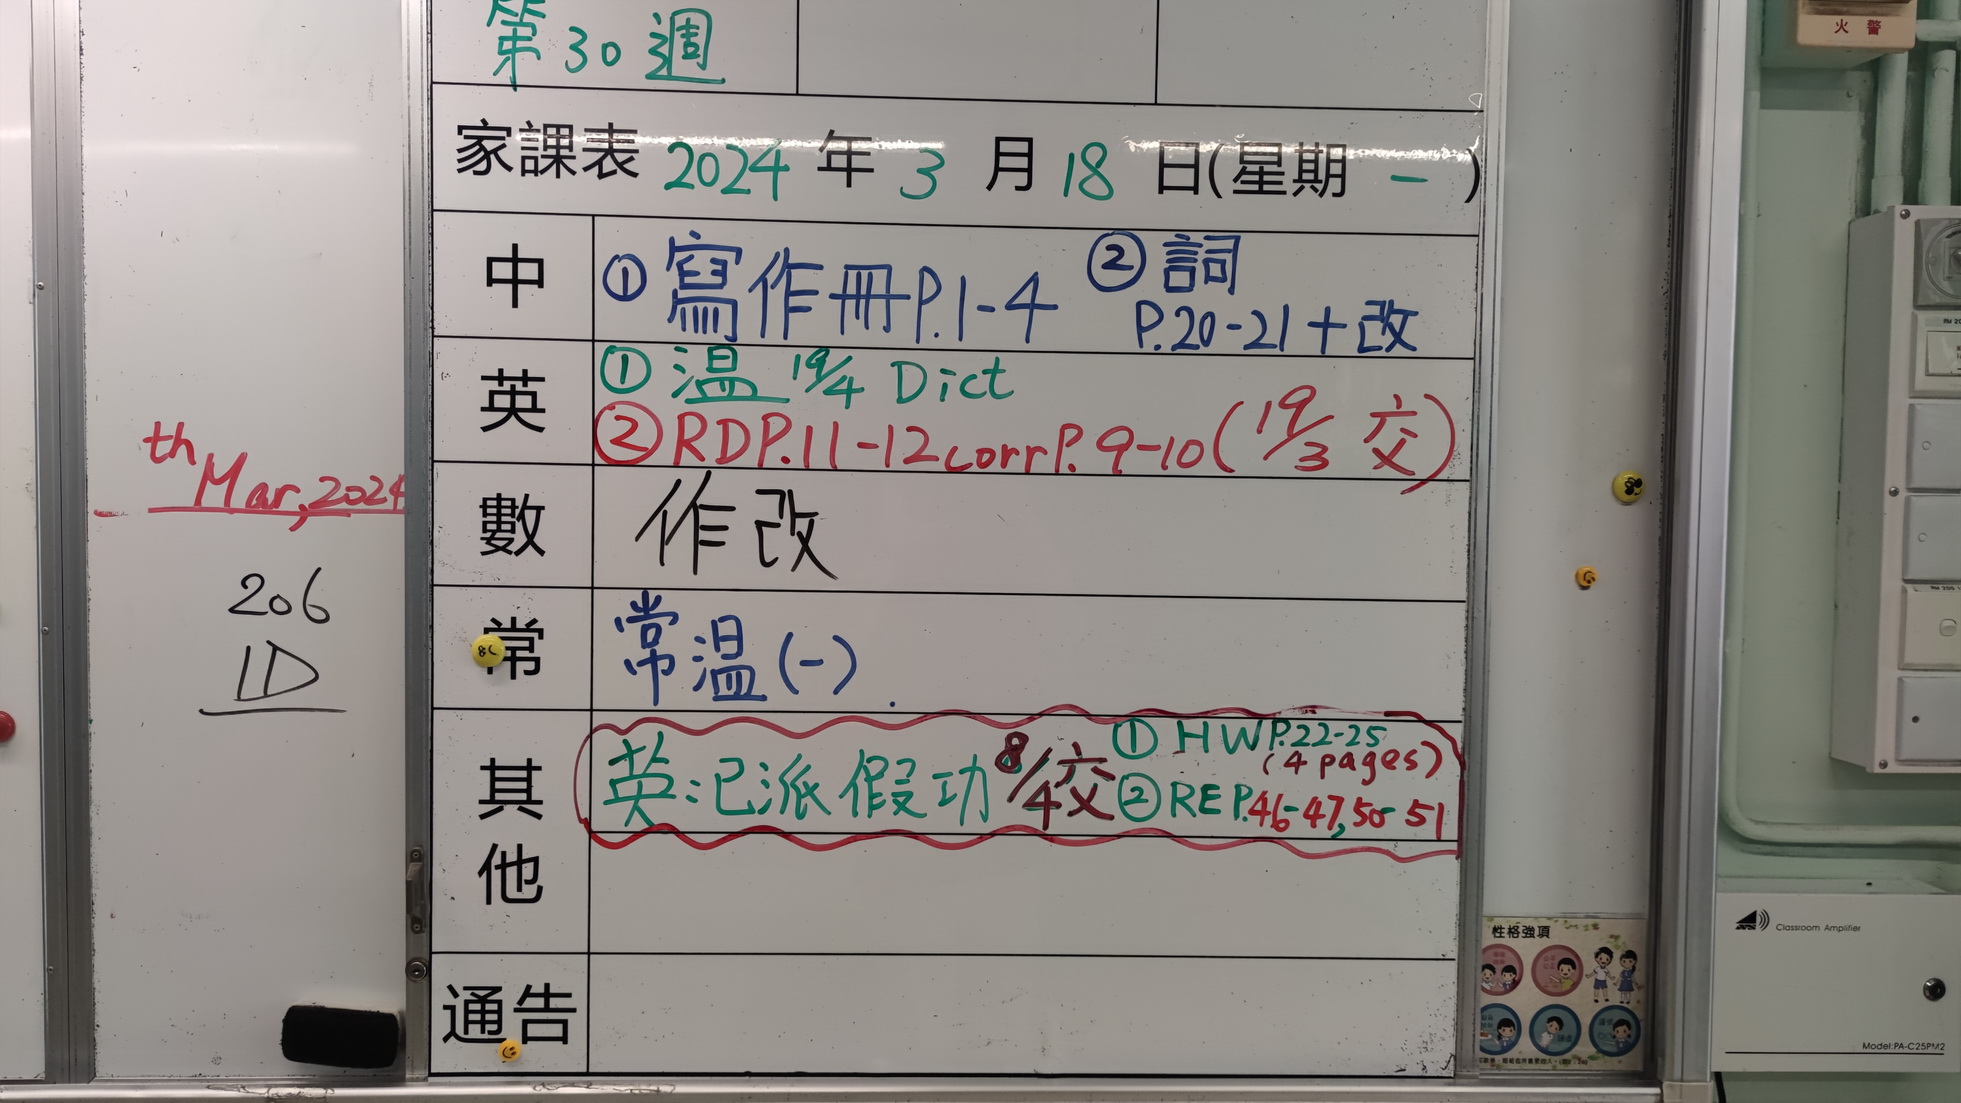 第30週
家課表 2024 年 3 月 18 日(星期 一 )
中
① 寫作冊P.1-4 ② 詞
P.20-21+改
英
① 温 19/4 Dict
② RDP.11-12corrP.9-10(19/3 交)
數
作改
常
常温(一)
其他
英已派假功 8/4交 ① HWP.22-25
(4 pages)
② REP.46-47,50-51
通告
th Mar,2024
206
1D
火 警
性格強項
Classroom Amplifier
Model:PA-C25PM2